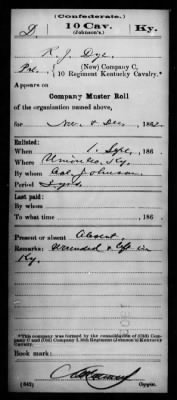 (Confederate.)
D. 10 Cav. Ky.
(Johnson's.)
R. J. Dye
Pvt., (New) Company C,
10 Regiment Kentucky Cavalry.*
Appears on
Company Muster Roll
of the organization named above,
for Nov. & Dec., 1862.
Enlisted:
When 1, Sept., 186
Where Ky.
By whom Col. Johnson
Period 3 yrs.
Last paid:
By whom
To what time , 186 .
Present or absent Absent
Remarks: Wounded & left in
Ky.
*This company was formed by the consolidation of (Old) Company C and (Old) Company I, 10th Regiment (Johnson's) Kentucky Cavalry.
Book mark:
(642) Copyist.